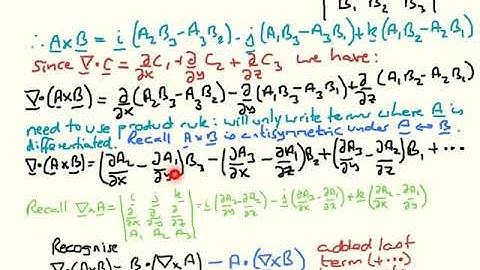 B₁ B₂ B₃
∴ A×B = i (A₂B₃-A₃B₂) - j (A₁B₃-A₃B₁) + k (A₁B₂-A₂B₁)
Since ∇·C = ∂/∂x C₁ + ∂/∂y C₂ + ∂/∂z C₃ we have:
∇·(A×B) = ∂/∂x (A₂B₃-A₃B₂) - ∂/∂y (A₁B₃-A₃B₁) + ∂/∂z (A₁B₂-A₂B₁)
need to use product rule: will only write terms where A is
differentiated. Recall A×B is antisymmetric under A ↔ B.
∇·(A×B) = (∂A₂/∂x - ∂A₁/∂y) B₃ - (∂A₃/∂x - ∂A₁/∂z) B₂ + (∂A₃/∂y - ∂A₂/∂z) B₁ + ...
Recall ∇×A = | i j k ; ∂/∂x ∂/∂y ∂/∂z ; A₁ A₂ A₃ | = i (∂A₃/∂y - ∂A₂/∂z) - j (∂A₃/∂x - ∂A₁/∂z) + k (∂A₂/∂x - ∂A₁/∂y)
Recognise added last
∇·(A×B) = B·(∇×A) - A·(∇×B) term (+...)